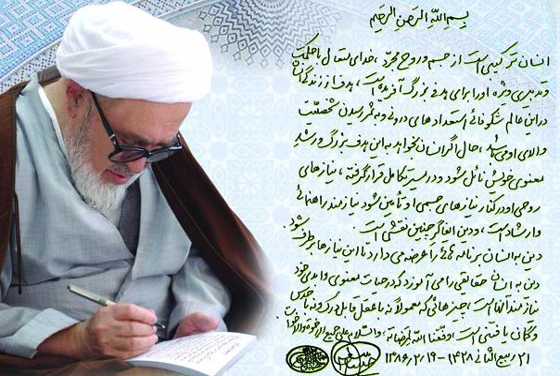 بسم الله الرحمن الرحیم
انسان ترکیبی است از جسم و روح مجرد، خدای متعال با حکمت
و تدبیری ویژه او را برای هدفی بزرگ آفریده است، هدف از زندگی انسان
در این عالم شکوفائی استعدادهای درونی و به ثمر رسیدن شخصیّت
والای او می‌باشد، حال اگر انسان بخواهد به این هدف بزرگ و رشد
معنوی خویش نائل شود و در مسیر تکامل قرار گرفته، نیازهای
روحی او در کنار نیازهای جسمی او تأمین شود نیازمند راهنمائی
و ارشاد است، و دین ایفاگر چنین نقشی است.
دین به انسان برنامه‌هائی را عرضه می‌دارد تا این نیازها برطرف شود
دین به انسان حقائقی را می‌آموزد که در حیات معنوی و ابدی خود
نیازمند آنهاست، چیزهائی که معمولاً نه با عقل قابل درک و نه با حواس
و گمان یافتنی است وفقنا الله لمرضاته، والسلام علی جمیع
۲۱ ربیع الثانی ۱۴۲۸ - ۱۳۸۶/۲/۱۹